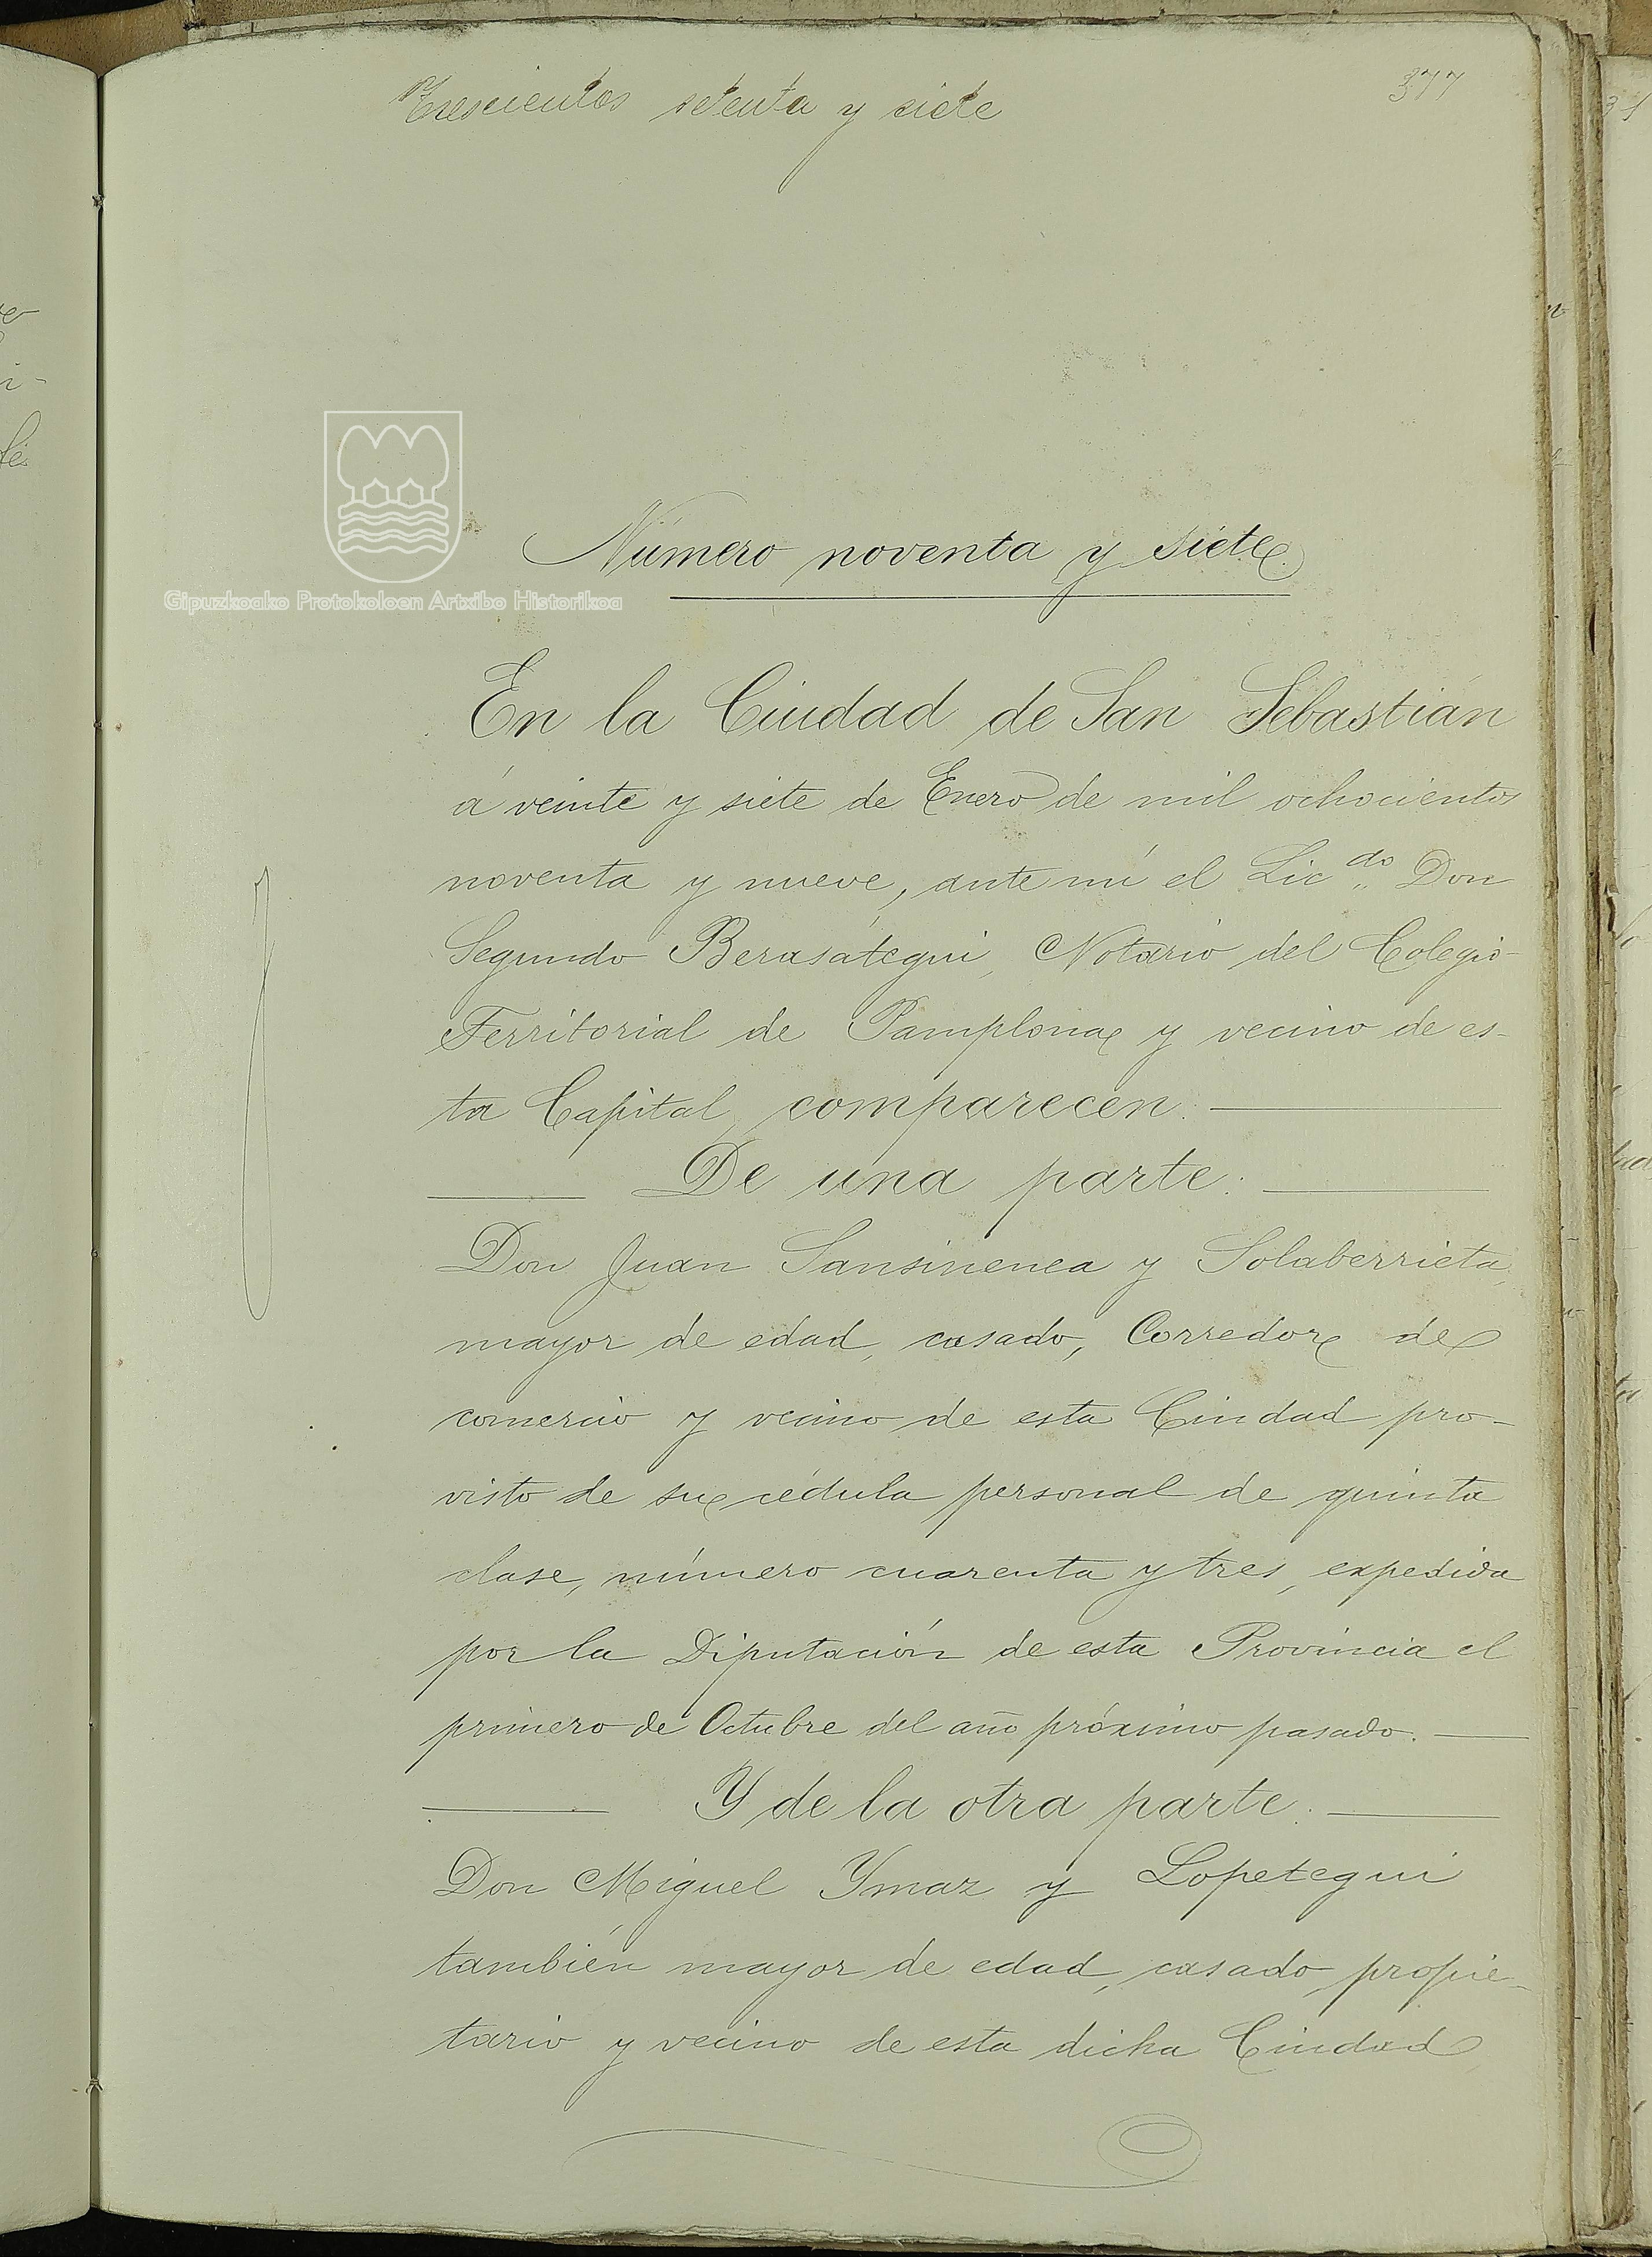 Trescientos setenta y siete
377
Gipuzkoako Protokoloen Artxibo Historikoa
Número noventa y siete.
En la Ciudad de San Sebastián
á veinte y siete de Enero de mil ochocientos
noventa y nueve, ante mí el Lic.do Don
Segundo Berasátegui, Notario del Colegio
Territorial de Pamplona y vecino de es-
ta Capital, comparecen.
De una parte:
Don Juan Sansinenea y Solaberrieta,
mayor de edad, casado, Corredor de
comercio y vecino de esta Ciudad pro-
visto de su cédula personal de quinta
clase, número cuarenta y tres, expedida
por la Diputación de esta Provincia el
primero de Octubre del año próximo pasado.
Y de la otra parte.
Don Miguel Ymaz y Lopetegui
también mayor de edad, casado, propie-
tario y vecino de esta dicha Ciudad,